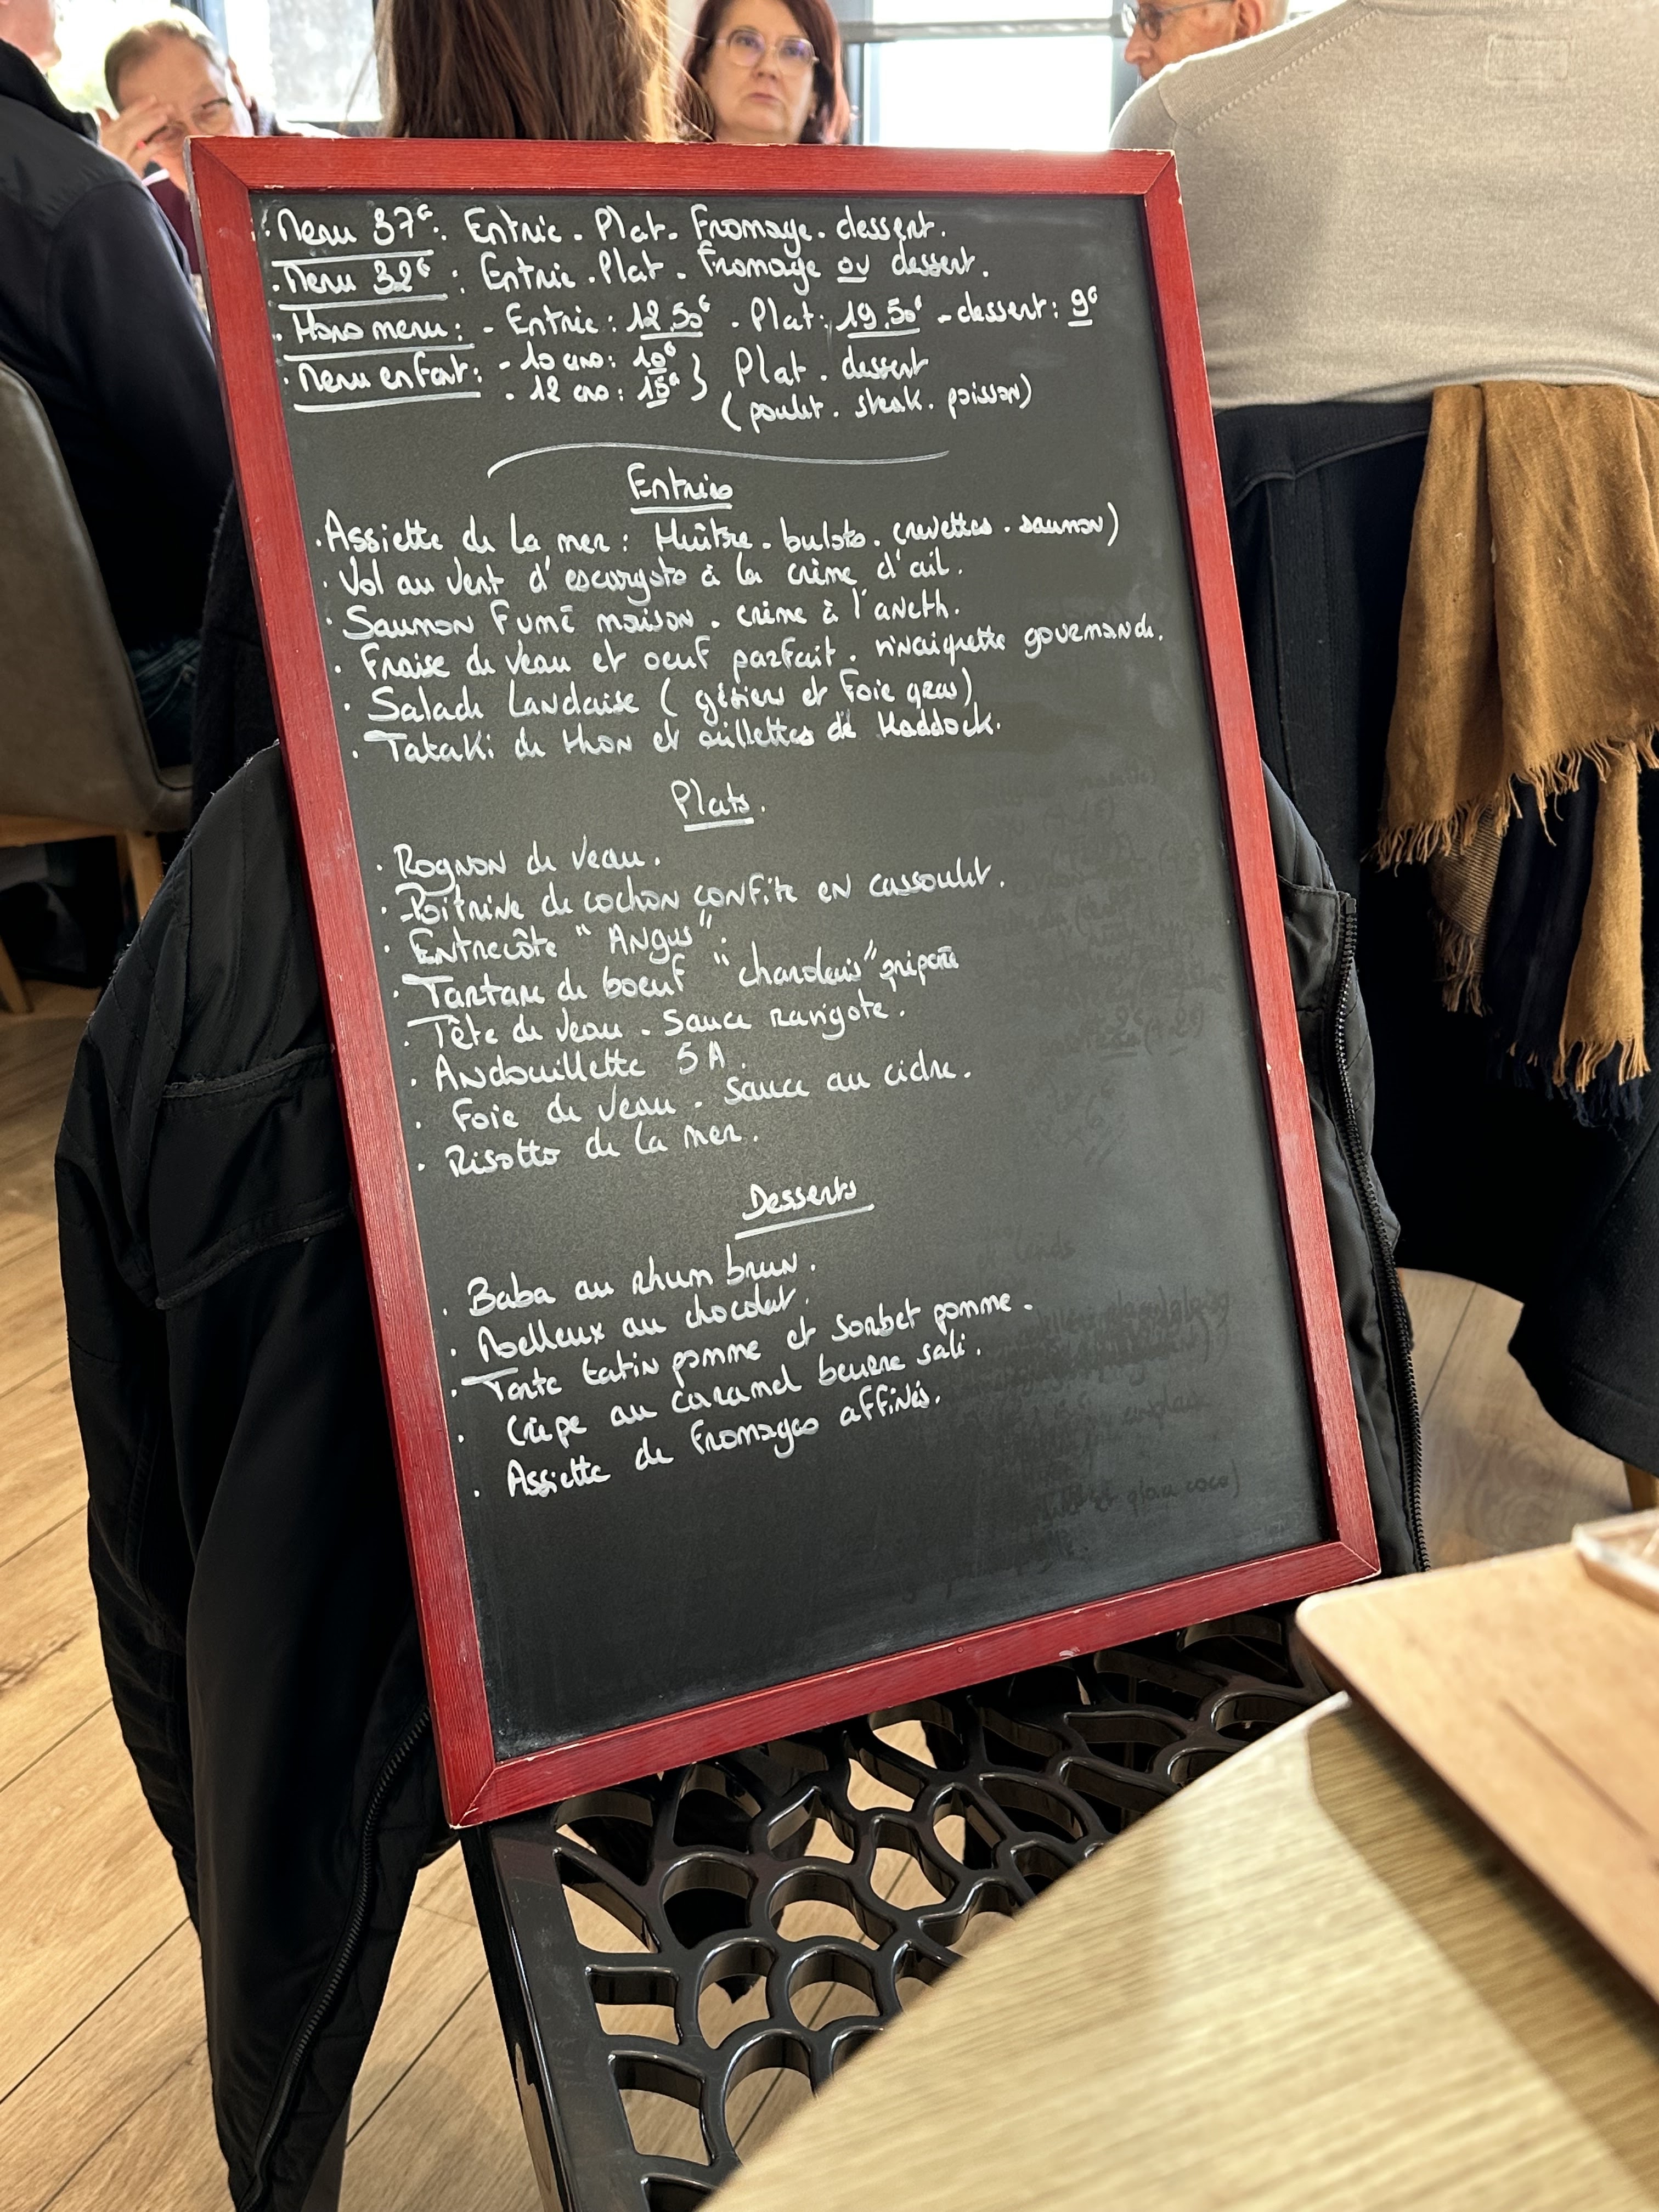 . Menu 37€ : Entrée . Plat . Fromage . dessert.
. Menu 32€ : Entrée . Plat . Fromage ou dessert.
. Hors menu : - Entrée : 12,50€ . Plat : 19,50€ - dessert : 9€
. Menu enfant : - 10 ans : 10€ } Plat . dessert
- 12 ans : 15€ (poulet . steak . poisson)
Entrées
. Assiette de la mer : Huître . bulots . crevettes . saumon)
. Vol au vent d'escargots à la crème d'ail.
. Saumon Fumé maison . crème à l'aneth.
. Fraise de veau et oeuf parfait . vinaigrette gourmande.
. Salade Landaise ( gésiers et Foie gras)
. Tataki de thon et oeillettes de Haddock.
Plats.
. Rognon de veau.
. Poitrine de cochon confite en cassoulet.
. Entrecôte "Angus".
. Tartare de boeuf "charolais" préparé
. Tête de veau . Sauce ravigote.
. Andouillette 5A.
. Foie de veau . Sauce au cidre.
. Risotto de la mer.
Desserts
. Baba au rhum brun.
. Moelleux au chocolat.
. Tarte tatin pomme et sorbet pomme.
. Crêpe au caramel beurre salé.
. Assiette de Fromages affinés.